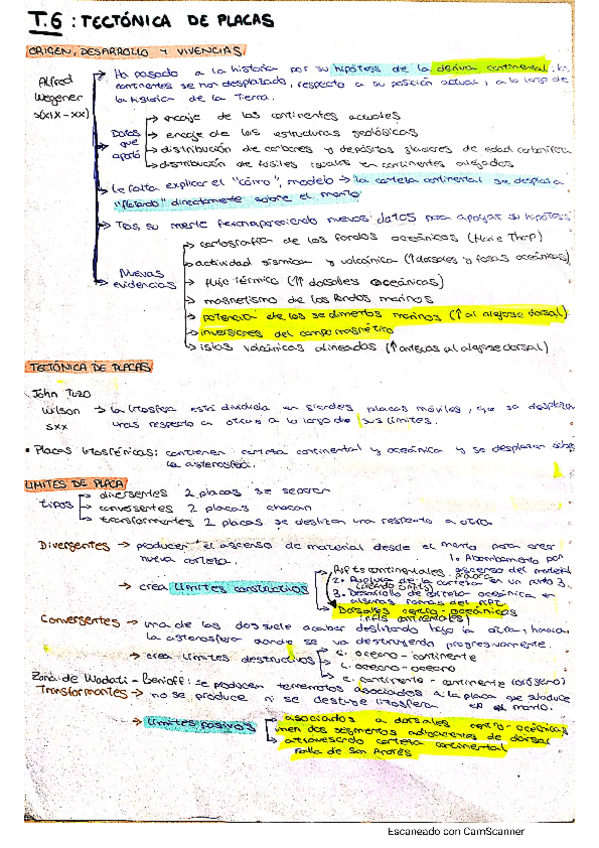 T.6: TECTÓNICA DE PLACAS
ORIGEN, DESARROLLO Y VIVENCIAS
Alfred Wegener s(XIX-XX)
Ha pasado a la historia por su hipótesis de la deriva continental: los
continentes se han desplazado, respecto a su posición actual, a lo largo de
la historia de la Tierra.
Datos que aportó
→ encaje de los continentes actuales
→ encaje de las estructuras geológicas
→ distribución de carbones y depósitos glaciares de edad carbonífera
→ distribución de fósiles iguales en continentes alejados
Le falta explicar el "cómo", modelo → la corteza continental se desplaza
"flotando" directamente sobre el manto
→ Tras su muerte fueron apareciendo nuevos datos para apoyar su hipótesis
Nuevas evidencias
→ cartografía de los fondos oceánicos (Marie Tharp)
→ actividad sísmica y volcánica (↑ dorsales y fosas oceánicas)
→ flujo térmico (↑↑ dorsales oceánicas)
→ magnetismo de los fondos marinos
→ potencia de los sedimentos marinos (↑ al alejarse dorsal)
→ inversiones del campo magnético
→ islas volcánicas alineadas (↑ antiguas al alejarse dorsal)
TECTÓNICA DE PLACAS
John Tuzo
Wilson → la litosfera está dividida en grandes placas móviles, que se desplazan
sXX unas respecto a otras a lo largo de sus límites.
• Placas litosféricas: contienen corteza continental y oceánica y se desplazan sobre
la astenosfera.
LIMITES DE PLACA
tipos
→ divergentes 2 placas se separan
→ convergentes 2 placas chocan
→ transformantes 2 placas se deslizan una respecto a otra
Divergentes → producen el ascenso de material desde el manto para crear
nueva corteza.
→ crea límites constructivos
Rifts continentales
1. Abombamiento por
ascenso del material
2. Ruptura de la corteza en un punto 3.
3. Desarrollo de corteza oceánica en
algunas ramas del rift
Dorsales centro-oceánicas
Convergentes → una de las dos suele acabar deslizando bajo la otra, hacia
la astenosfera donde se va destruyendo progresivamente.
→ crea límites destructivos
c. oceano-continente
c. oceano-oceano
c. continente-continente (orógeno)
Zona de Wadati-Benioff: se producen terremotos asociados a la placa que subduce
en el manto.
Transformantes → no se produce ni se destruye litosfera
→ límites pasivos
→ asociados a dorsales centro-oceánicas
unen dos segmentos adyacentes de dorsal
→ atravesando corteza continental
Falla de San Andrés
Escaneado con CamScanner